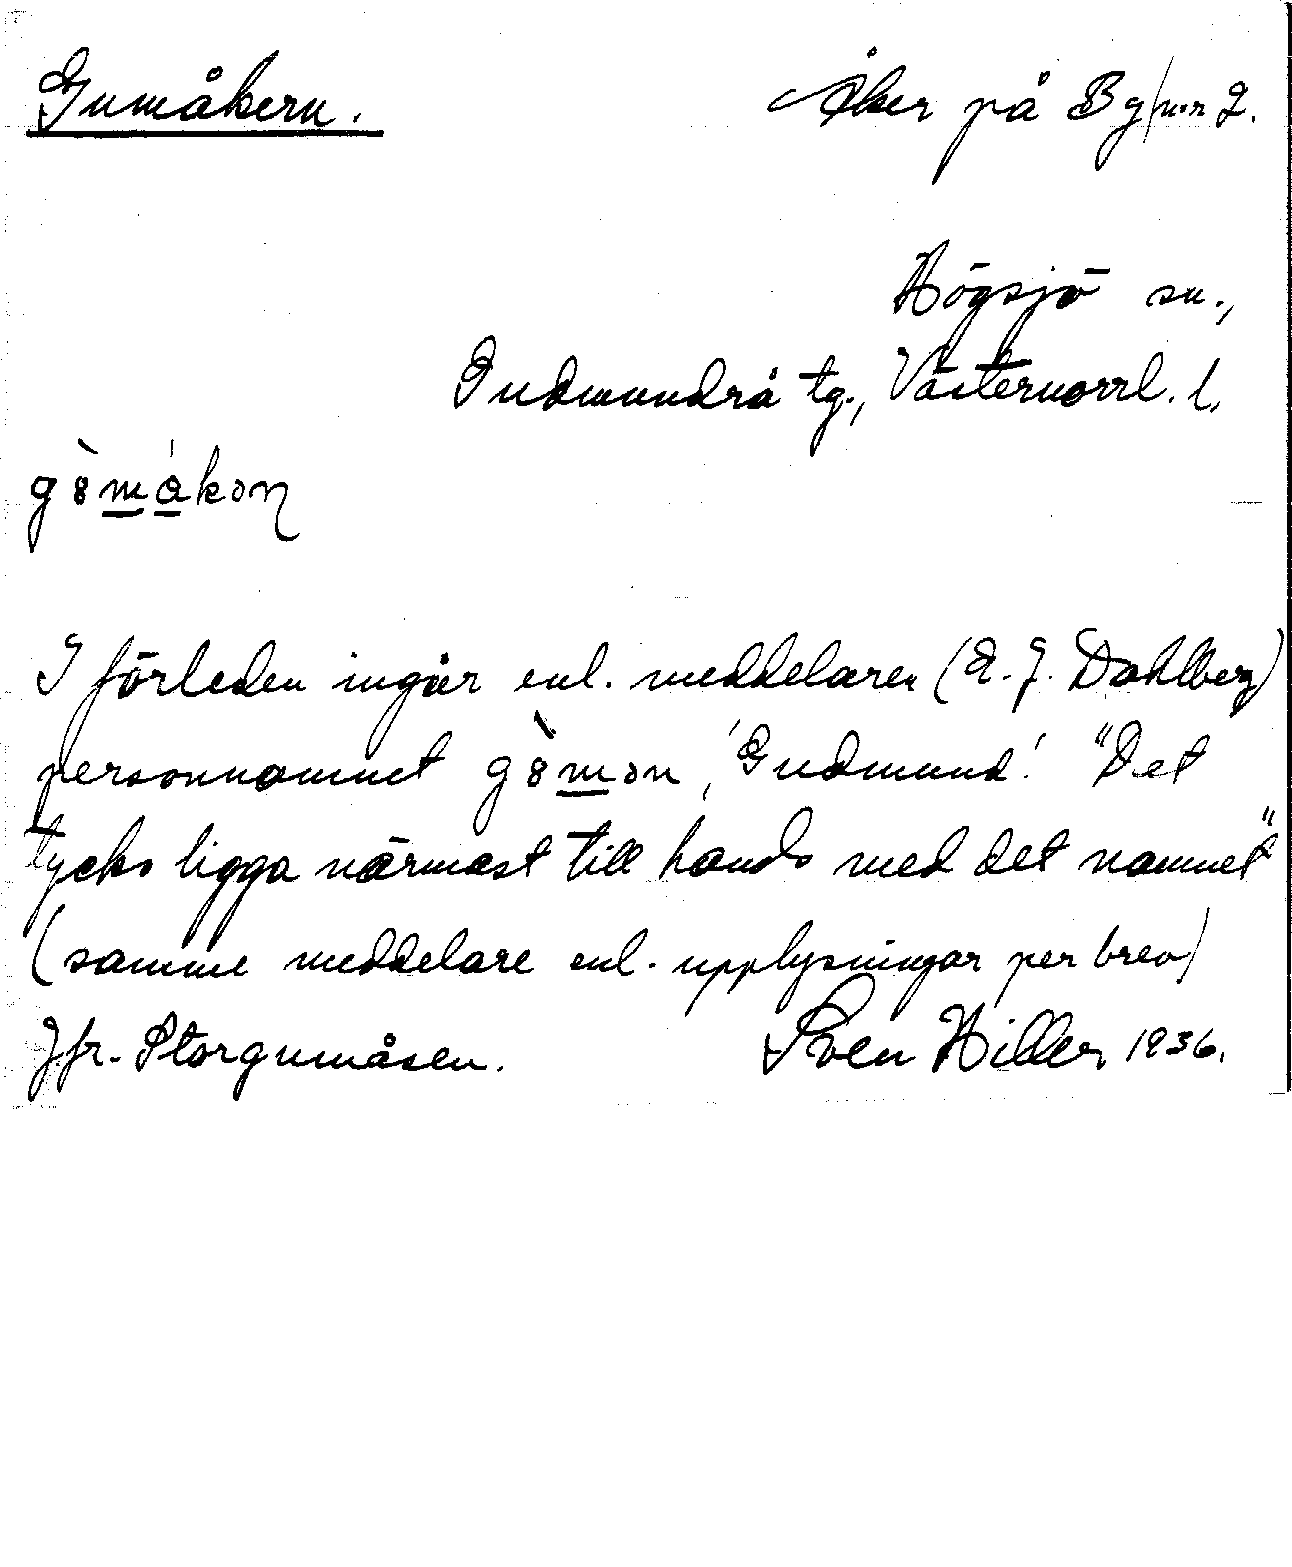 Gumåkern. Åker på By nr 2.
Högsjö sn.,
Gudmundrå tg., Västernorrl. l.
I förleden ingår enl. meddelaren (E. J. Dahlberg)
personnamnet 'Gudmund'. "Det
tycks ligga närmast till hands med det namnet"
(samme meddelare enl. upplysningar per brev)
Jfr. Storgumåsen. Sven Hiller 1936.